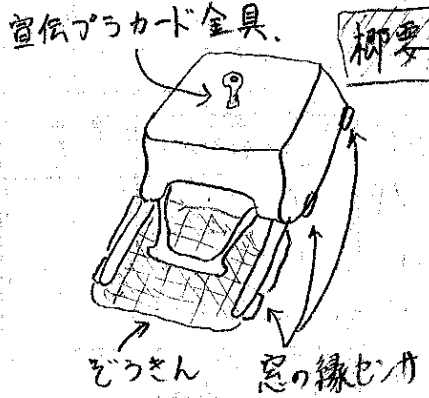 宣伝プラカード金具.
概要
ぞうきん
窓の縁センサ